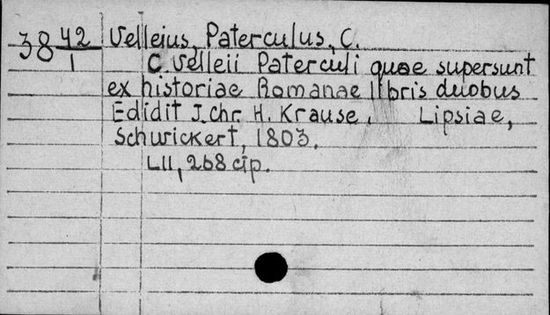 38 42/1 Velleius, Paterculus, C.
C. Velleii Paterculi quae supersunt
ex historiae Romanae libris duobus
Edidit J. Chr. H. Krause. Lipsiae,
Schwickert, 1803.
LII, 268 стр.